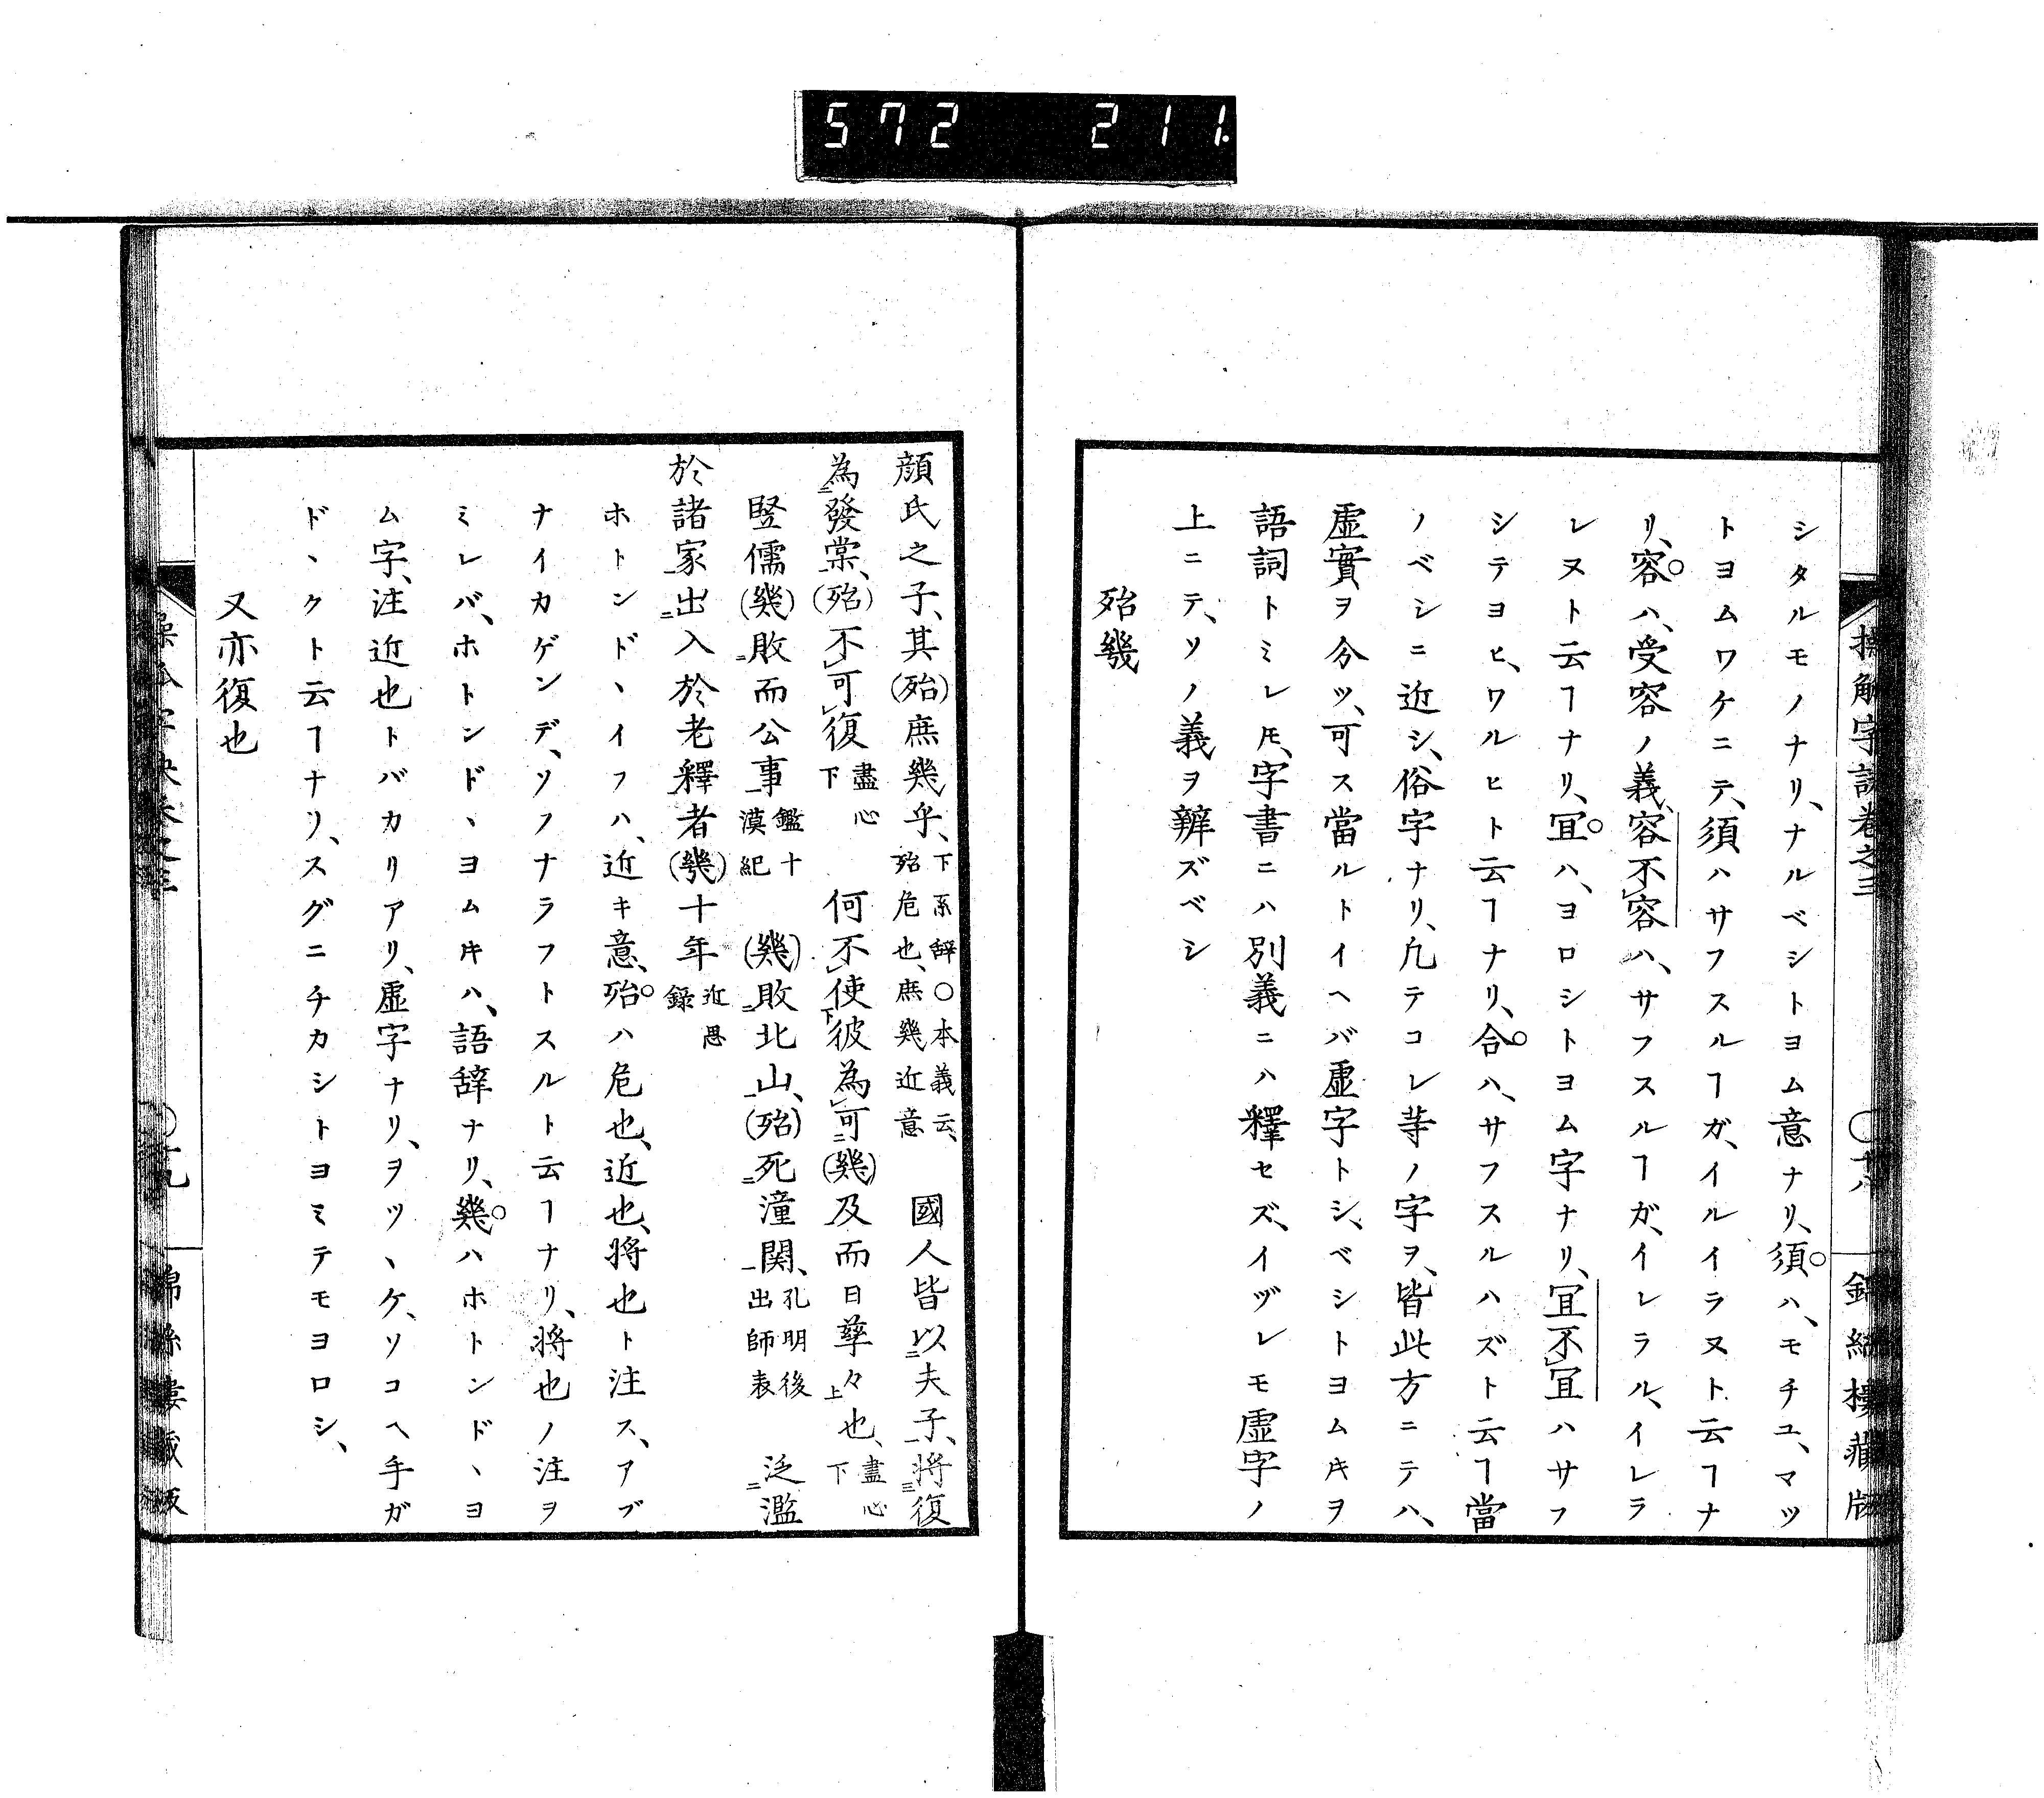 572 211.
シタルモノナリ、ナルベシトヨム意ナリ、須ハ、モチユ、マツ
トヨムワケニテ、須ハサフスルヿガ、イルイラヌト云ヿナ
リ、容ハ、受容ノ義、容不容ハ、サフスルヿガ、イレラル、イレラ
レヌト云ヿナリ、冝ハ、ヨロシトヨム字ナリ、冝不冝ハサフ
シテヨヒ、ワルヒト云ヿナリ、合ハ、サフスルハズト云ヿ當
ノベシニ近シ、俗字ナリ、凢テコレ等ノ字ヲ、皆此方ニテハ、
虚實ヲ分ツ、可ス當ルトイヘバ虚字トシ、ベシトヨムキヲ
語詞トミレ𪜈、字書ニハ別義ニハ釋セズ、イヅレモ虚字ノ
上ニテ、ソノ義ヲ辨ズベシ
殆幾
顔氏之子、其(殆)庶幾乎、下系辞○本義云、殆危也、庶幾近意 國人皆以夫子、将復
為發棠、(殆)不可復盡心下 何不使彼為可(幾)及而日孳々也、盡心下
竪儒(幾)敗而公事鑑十漢紀 (幾)敗北山、(殆)死潼関、孔明後出師表 泛濫
於諸家出入於老釋者(幾)十年近思録
ホトンド、イフハ、近キ意、殆ハ危也、近也、将也ト注ス、アブ
ナイカゲンデ、ソフナラフトスルト云ヿナリ、将也ノ注ヲ
ミレバ、ホトンド、ヨムキハ、語辞ナリ、幾ハホトンド、ヨ
ム字、注近也トバカリアリ、虚字ナリ、ヲツヽケ、ソコヘ手ガ
ドヽクト云ヿナリ、スグニチカシトヨミテモヨロシ、
又亦復也